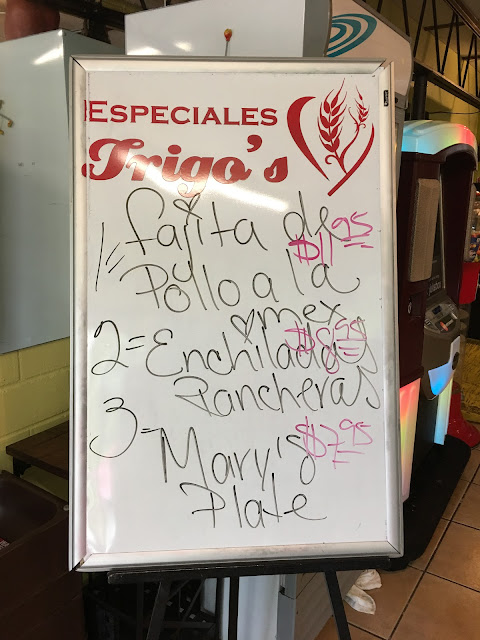 ESPECIALES
Trigo's
1= fajita de $11.95
Pollo a la
mex
2= Enchiladas $8.99
Rancheras
3- Mary's $7.95
Plate